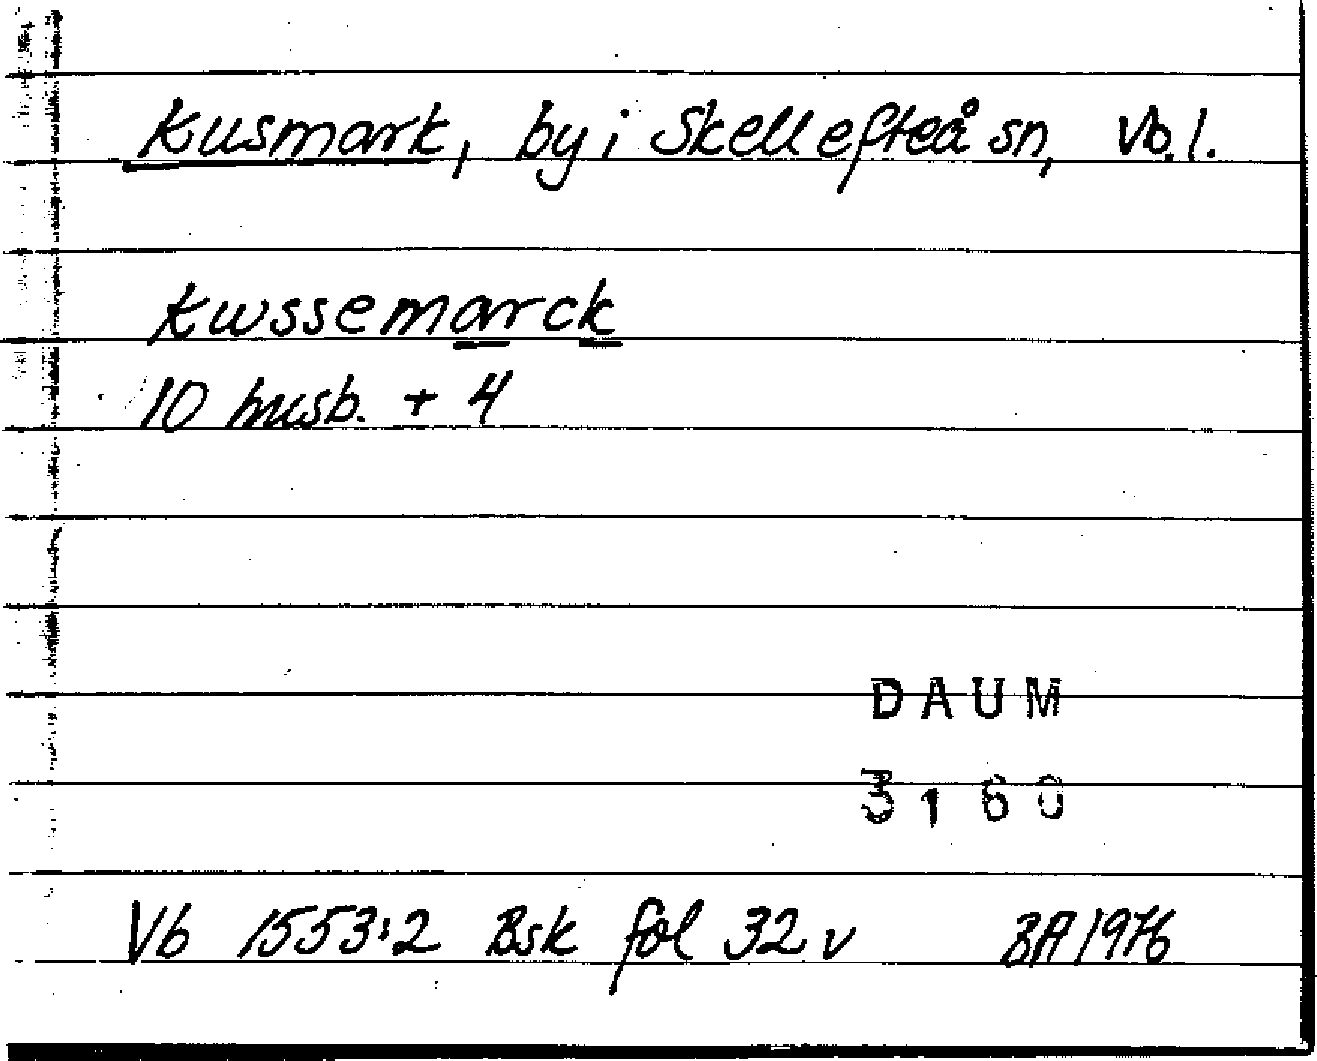 Kusmark, by i Skellefteå sn, Vb. l.
Kwssemarck
10 husb. + 4
DAUM
3160
Vb 1553:2 Bsk fol 32 v BA 1976